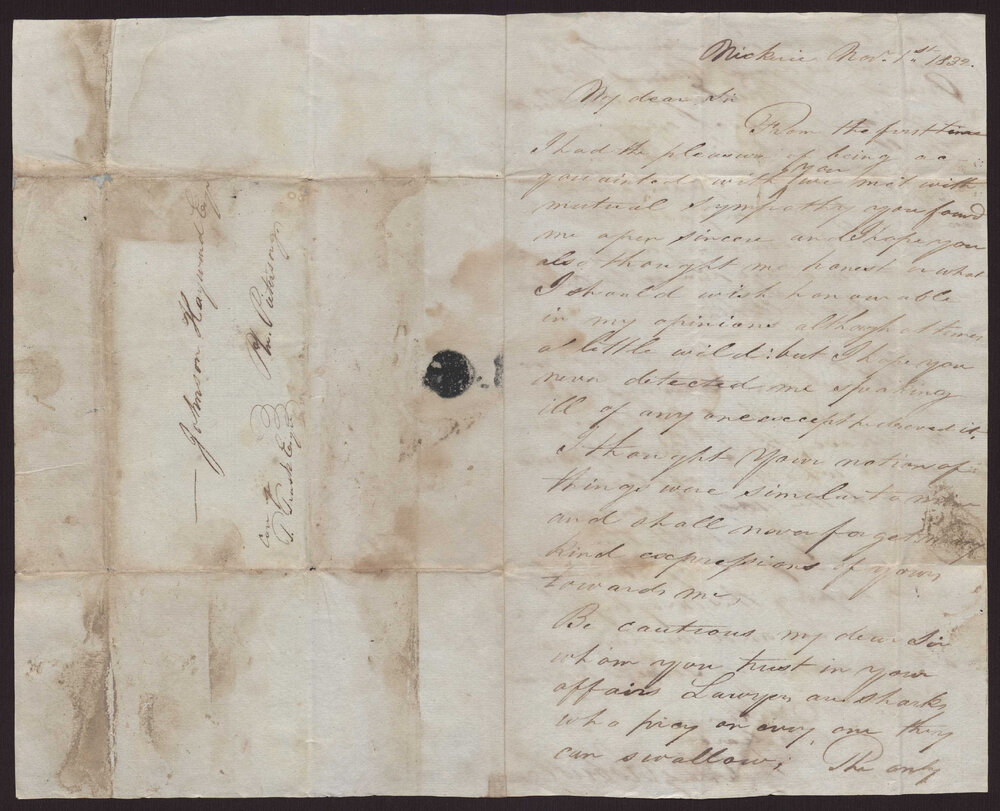 Johnson Hayward Esqr
Con ty
P. Trask Esqr
Nickerie Nov. 1st 1832.
My dear Sir
From the first time
I had the pleasure of being ac
quainted with you we met with
mutual sympathy you found
me open sincere and I hope you
also thought me honest in what
I should wish honourable
in my opinions although at times
a little wild: but I hope you
never detected me speaking
ill of any one except he deserved it.
I thought your notion of
things were similar to mine
and shall never forget
kind expressions of yours
towards me,
Be cautious my dear Sir
whom you trust in your
affairs Lawyers are sharks
who prey on every one they
can swallow; The only